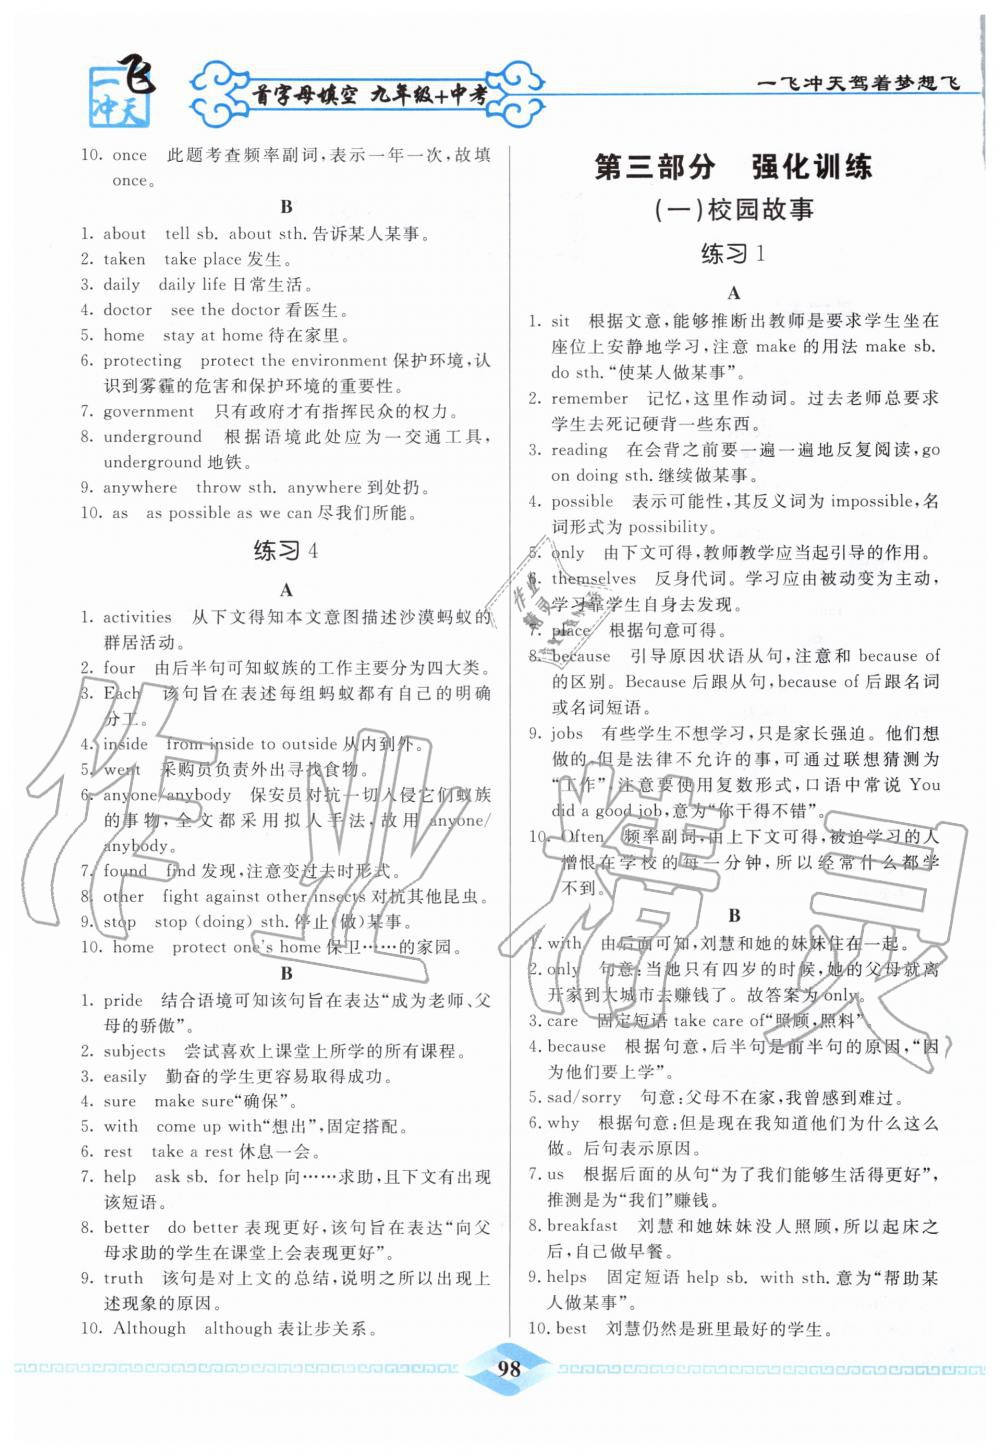 一飞冲天
首字母填空 九年级+中考
一飞冲天驾着梦想飞
10. once 此题考查频率副词,表示一年一次,故填
once。
B
1. about tell sb. about sth.告诉某人某事。
2. taken take place发生。
3. daily daily life日常生活。
4. doctor see the doctor看医生。
5. home stay at home待在家里。
6. protecting protect the environment保护环境,认
识到雾霾的危害和保护环境的重要性。
7. government 只有政府才有指挥民众的权力。
8. underground 根据语境此处应为一交通工具,
underground地铁。
9. anywhere throw sth. anywhere到处扔。
10. as as possible as we can尽我们所能。
练习 4
A
1. activities 从下文得知本文意图描述沙漠蚂蚁的
群居活动。
2. four 由后半句可知蚁族的工作主要分为四大类。
3. Each 该句旨在表述每组蚂蚁都有自己的明确
分工。
4. inside from inside to outside从内到外。
5. went 采购员负责外出寻找食物。
6. anyone/anybody 保安员对抗一切入侵它们蚁族
的事物,全文都采用拟人手法,故用 anyone/
anybody。
7. found find发现,注意变过去时形式。
8. other fight against other insects对抗其他昆虫。
9. stop stop (doing) sth.停止(做)某事。
10. home protect one's home保卫……的家园。
B
1. pride 结合语境可知该句旨在表达“成为老师、父
母的骄傲”。
2. subjects 尝试喜欢上课堂上所学的所有课程。
3. easily 勤奋的学生更容易取得成功。
4. sure make sure“确保”。
5. with come up with“想出”,固定搭配。
6. rest take a rest休息一会。
7. help ask sb. for help向……求助,且下文有出现
该短语。
8. better do better表现更好,该句旨在表达“向父
母求助的学生在课堂上会表现更好”。
9. truth 该句是对上文的总结,说明之所以出现上
述现象的原因。
10. Although although表让步关系。
第三部分 强化训练
(一)校园故事
练习 1
A
1. sit 根据文意,能够推断出教师是要求学生坐在
座位上安静地学习,注意 make 的用法 make sb.
do sth.“使某人做某事”。
2. remember 记忆,这里作动词。过去老师总要求
学生去死记硬背一些东西。
3. reading 在会背之前要一遍一遍地反复阅读,go
on doing sth.继续做某事。
4. possible 表示可能性,其反义词为 impossible,名
词形式为 possibility。
5. only 由下文可得,教师教学应当起引导的作用。
6. themselves 反身代词。学习应由被动变为主动,
学习靠学生自身去发现。
7. place 根据句意可得。
8. because 引导原因状语从句,注意和 because of
的区别。Because 后跟从句,because of 后跟名词
或名词短语。
9. jobs 有些学生不想学习,只是家长强迫。他们想
做的,但是法律不允许的事,可通过联想猜测为
“工作”,注意要使用复数形式,口语中常说 You
did a good job,意为“你干得不错”。
10. Often 频率副词,由上下文可得,被迫学习的人
憎恨在学校的每一分钟,所以经常什么都学
不到。
B
1. with 由后面可知,刘慧和她的妹妹住在一起。
2. only 句意:当她只有四岁的时候,她的父母就离
开家到大城市去赚钱了。故答案为 only。
3. care 固定短语 take care of“照顾,照料”。
4. because 根据句意,后半句是前半句的原因,“因
为他们要上学”。
5. sad/sorry 句意:父母不在家,我曾感到难过。
6. why 根据句意:但是现在我知道他们为什么这么
做。后句表示原因。
7. us 根据后面的从句“为了我们能够生活得更好”,
推测是为“我们”赚钱。
8. breakfast 刘慧和她妹妹没人照顾,所以起床之
后,自己做早餐。
9. helps 固定短语 help sb. with sth.意为“帮助某
人做某事”。
10. best 刘慧仍然是班里最好的学生。
98
作业精灵